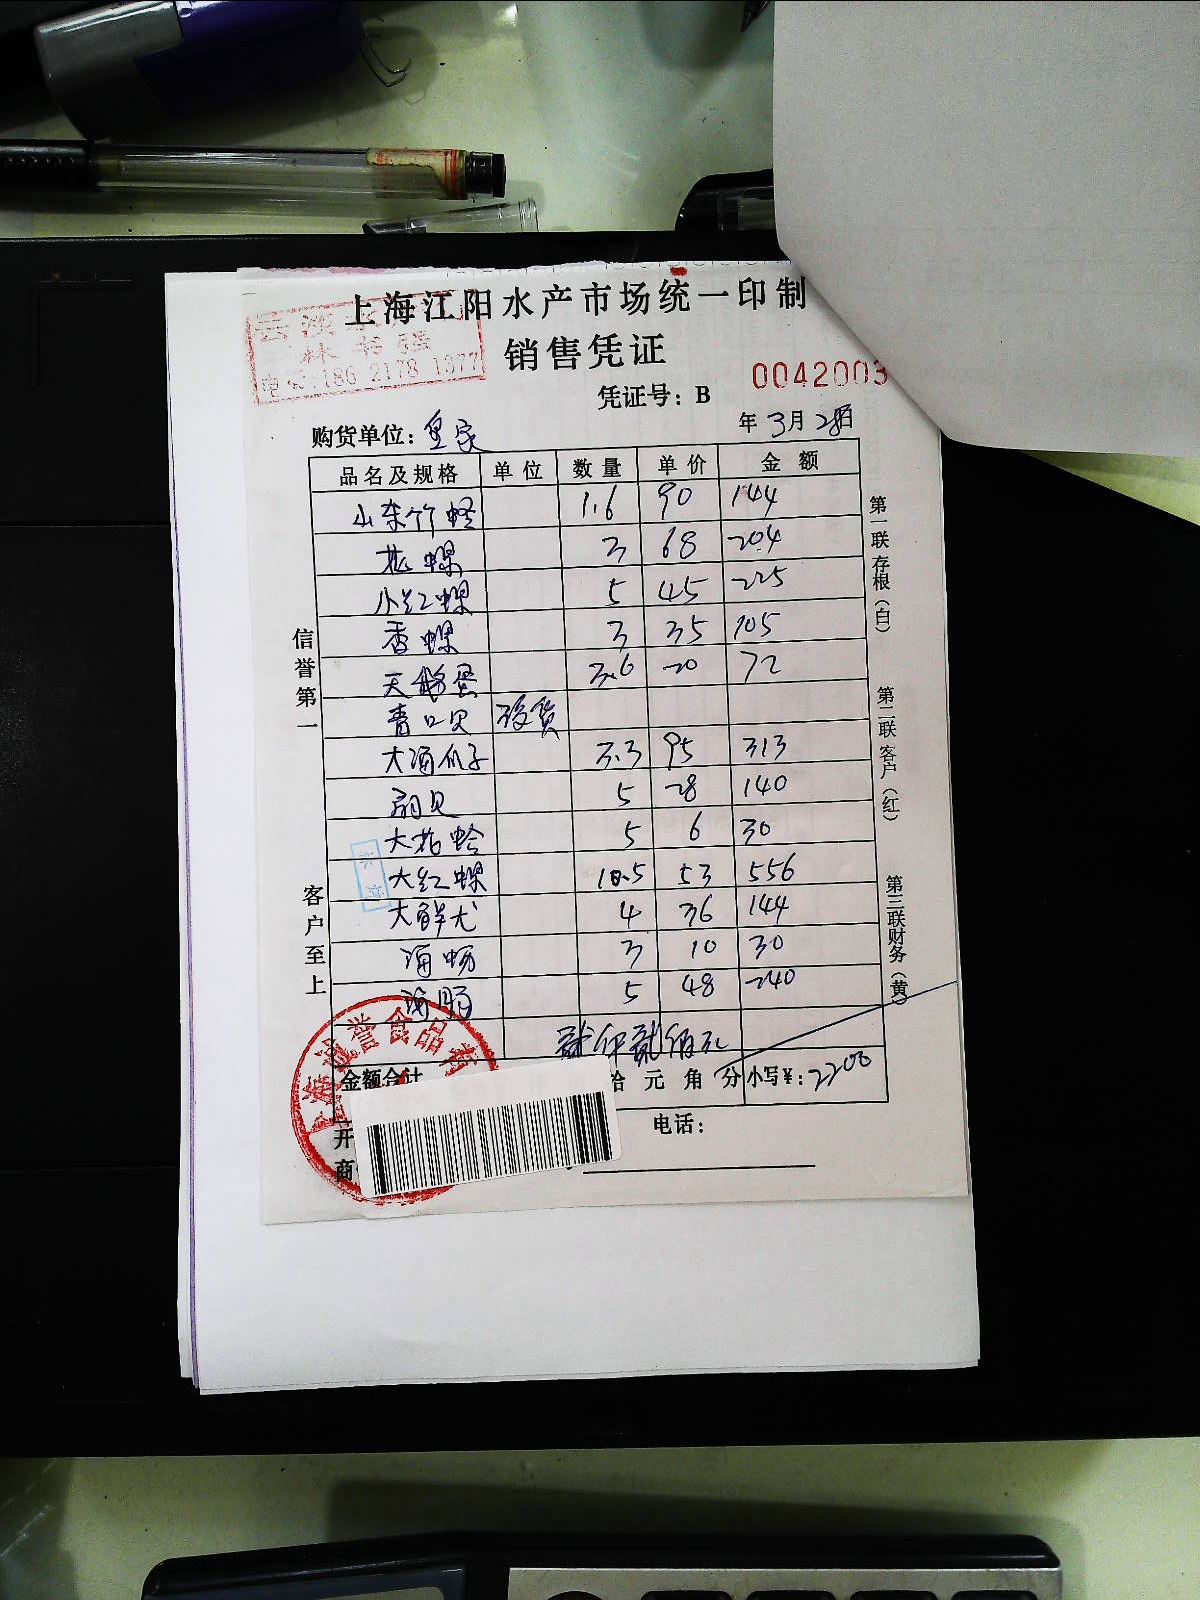 上海江阳水产市场统一印制
林书强
电话:186 2178 1377
销售凭证
0042003
凭证号：B
购货单位：皇家
年 3月 28日
品名及规格 单位 数量 单价 金额
山东竹蛏 1.6 90 144
花螺 3 68 204
小红螺 5 45 225
香螺 3 35 105
天鹅蛋 3.6 20 72
青口贝 没货
大海瓜子 3.3 95 313
扇贝 5 28 140
大花蛤 5 6 30
大红螺 10.5 53 556
大鲜尤 4 36 144
海蛎 3 10 30
海肠 5 48 240
贰仟贰佰元
金额合计 拾 元 角 分 小写￥：2200
开
电话：
商
信誉第一
客户至上
第一联存根（白）
第二联客户（红）
第三联财务（黄）